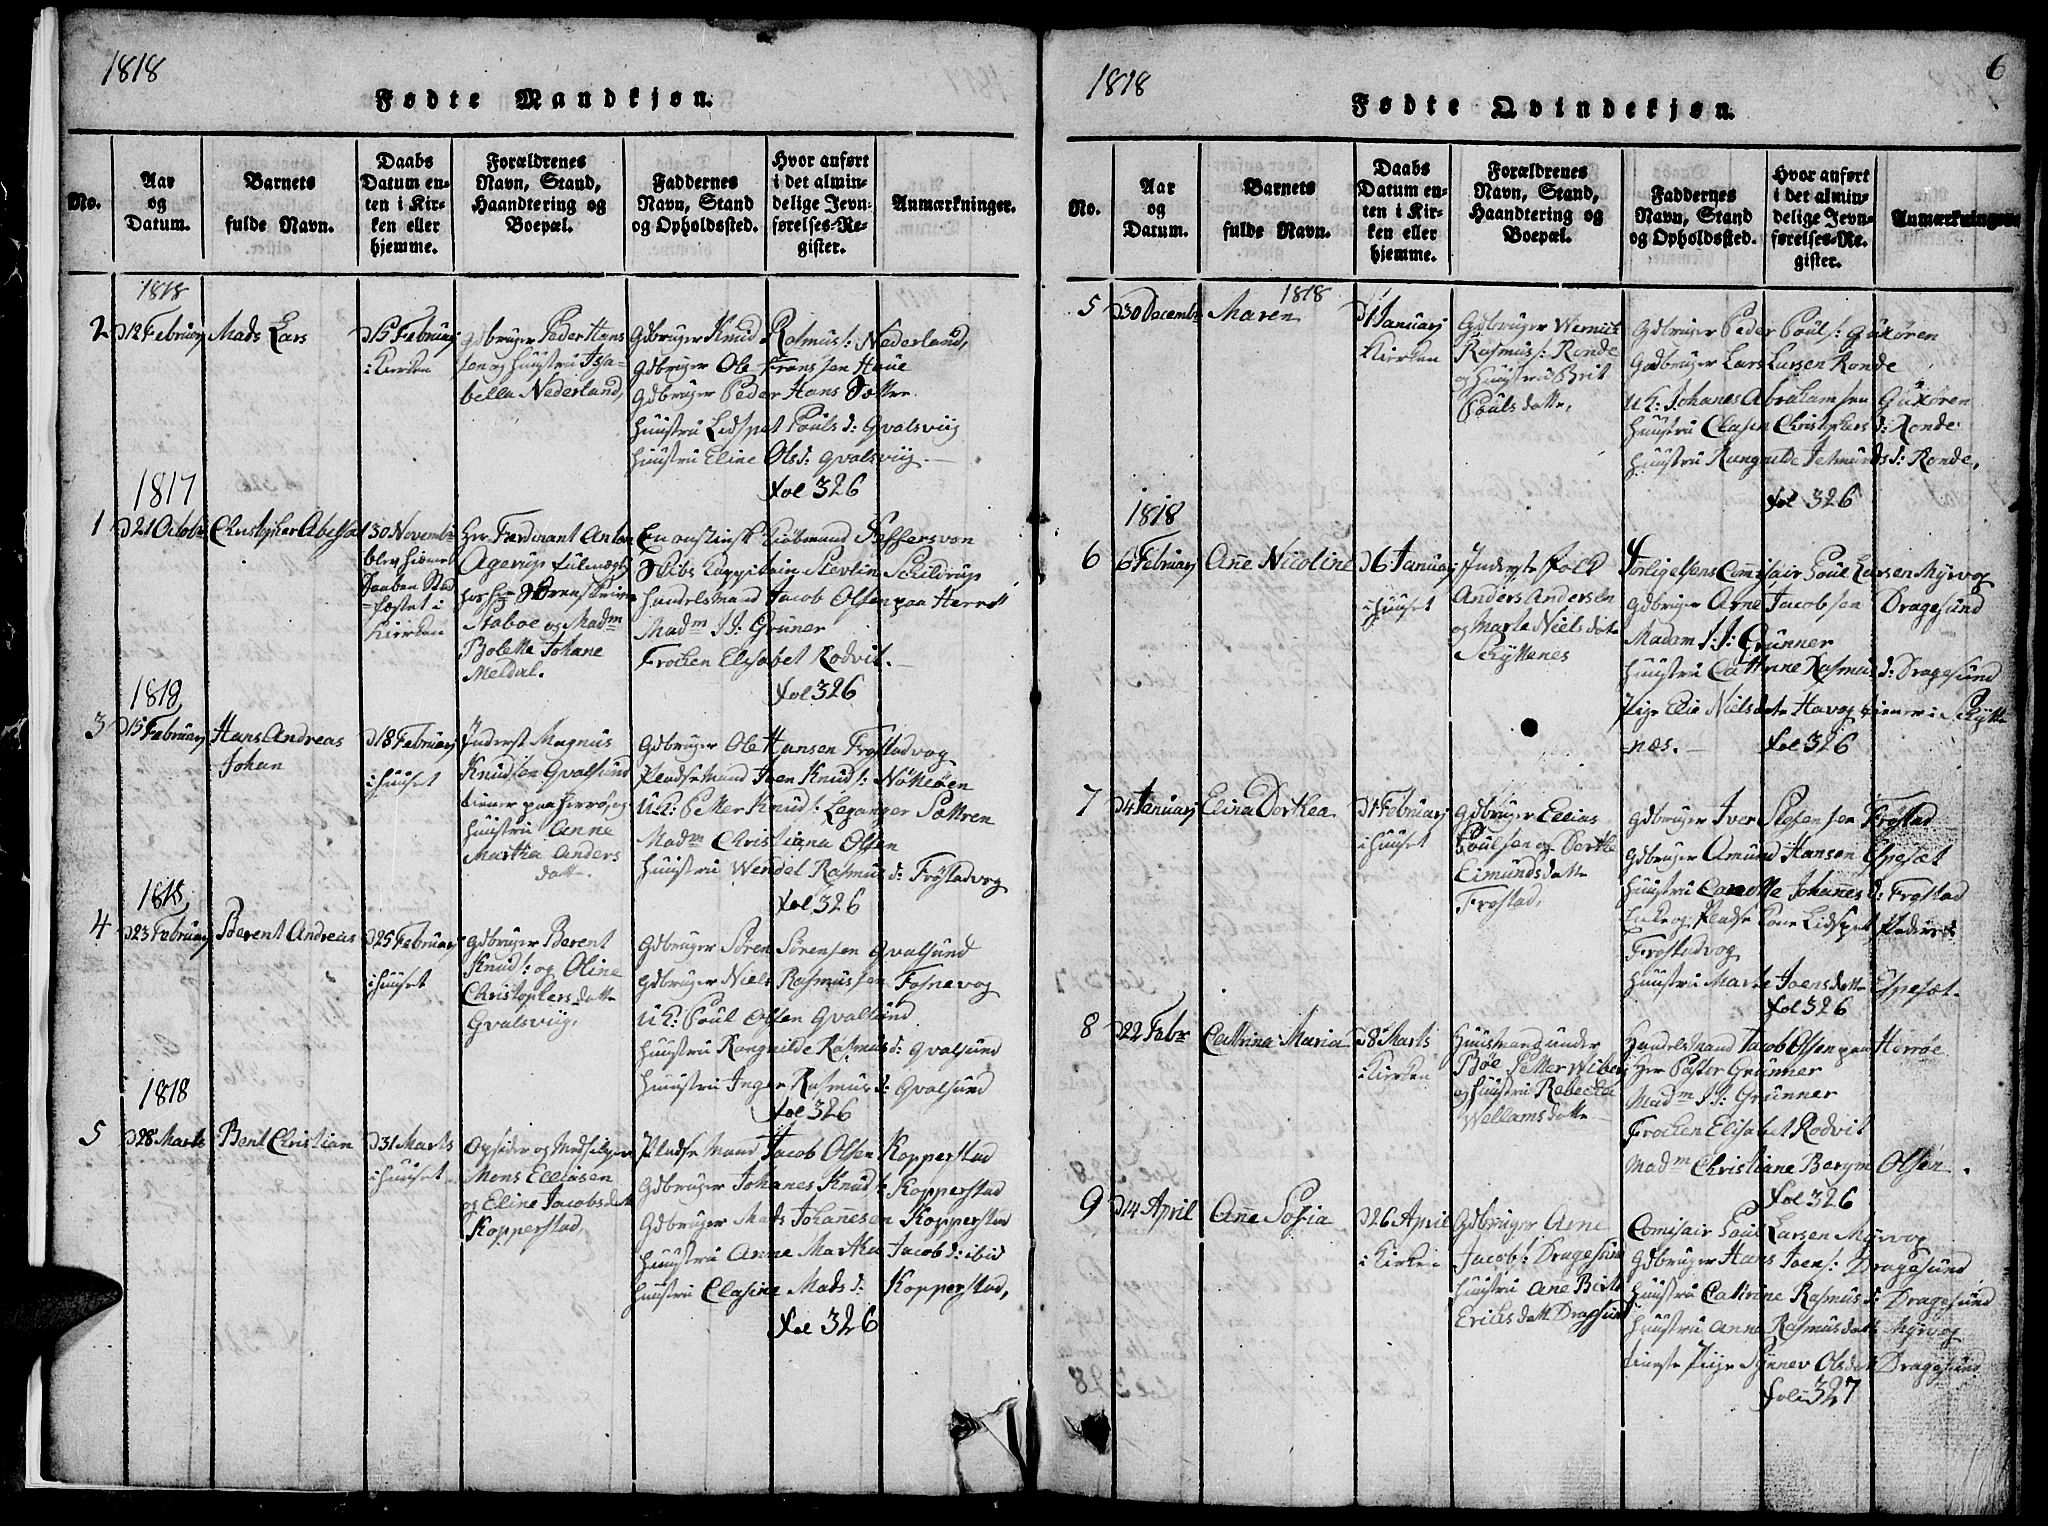 1818
Fødte Mandkjøn.
No.
Aar og Datum.
Barnets fulde Navn.
Daabs Datum enten i Kirken eller hjemme.
Forældrenes Navn, Stand, Haandtering og Boepæl.
Faddernes Navn, Stand og Opholdssted.
Hvor anført i det almindelige Jevnførelses-Register.
Anmærkninger.
1818
2 D12 Februarj Mads Lars
D15 Februarj i Kirken
Gdbruger Peder Hans
sen og Huustru Isa-
bella Nederland,
Gdbruger Knud Rasmus s: Nederland,
Gdbruger Ole Franssen Houe
Gdbruger Peder Hans Sætre
Huustru Lidspet Pouls d: Gvalsviig
Huustru Eline Ols d: Gvalsviig.
fol 326
1817
1 D21 Octobr Christopher Abelsæt
30 Novembr
blev hiemme
Daaben Stad
fæstet i
Kirken
Her Ferdinant Anton
Agerup fulmægtig
hos Hr: Sørenskriver
Staboe og Madm
Bolette Johane
Meldal.
Skibs Kappitain Stevlin Schildrup
Handelsmand Jacob Olsen paa Herrøe
Madm J J: Grüner
Frøcken Elisabet Rodvit.
fol 326
1818
3 D15 Februarj Hans Andreas
Johan
D18 Februarj
i Huuset
Inderst Magnus
Knudsen Gvalsund
tiener paa Herrøe, og
Huustru Anne
Martha Anders
datte.
Gdbruger Ole Hansen Frøstadvog
Pladsemand Joen Knud s: Nøtleøen
UK: Petter Knud s: Leganger Sættren
Madm Christiana Olsen
Huustru Wendel Rasmus d: Frøstadvog
fol 326
1818
4 D23 Februarj Berent Andreas
D25 Februarj
i Huuset
Gdbruger Berent
Knud s: og Oline
Christophersdatte
Gvalsviig,
Gdbruger Søren Sørensen Gvalsund
Gdbruger Niels Rasmussen Fosnevog
UK: Poul Olsen Gvalsund
Huustru Rangnilde Rasmus d: Gvalsund
Huustru Inger Rasmus d: Gvalsund
fol 326
1818
5 D28 Marts Bent Christian
D31 Marts
i Huuset
Opsider og Medhielper
Mons Elliasen
og Eline Jacobsdatt
Kopperstad,
Pladsemand Jacob Olsen Kopperstad
Gdbruger Johanes Knud s: Kopperstad
Gdbruger Mads Johannesen Kopperstad
Huustru Anne Martha Jacob d: ibid
Huustru Clasine Mads d: Kopperstad,
fol 326
1818
6
Fødte Qvindekjøn.
No.
Aar og Datum.
Barnets fulde Navn.
Daabs Datum enten i Kirken eller hjemme.
Forældrenes Navn, Stand, Haandtering og Boepæl.
Faddernes Navn, Stand og Opholdssted.
Hvor anført i det almindelige Jevnførelses-Re. gister.
Anmærkninger.
1818
5 D30 Decembr Maren
D1 Januarj
i Kirken
Gdbruger Wernick
Rasmus s: Ronde
og Huustru Brit
Poulsdatte,
Gdbruger Peder Poul s: Guxøren
Gdbruger Lars Larsen Ronde
UK: Johanes Abrahamsen Guxøren
Huustru Clasen Christophers d: Ronde
Huustru Rangnilde Jetmunds d: Ronde,
fol 326
1818
6 6 Februarj Anne Nicoline
D6 Januarj
i Huuset
Inderste folk
Anders Andersen
og Marte Nielsdatte
Schyttenes
Forligelsens Commisair Poul Larsen Myrvog
Gdbruger Arne Jacobsen Dragesund
Madam J. J: Grünner
Huustru Cathrine Rasmus d: Dragesund
Pige Elie Nielsdatte Havog tiener i Schytte
næs.
fol 326
7 D4 Januarj Elina Dorthea
D1 Februarj
i Huuset
Gdbruger Ellias
Poulsen og Dorthe
Eimundsdatte
Frøstad,
Gdbruger Iver Stefensen Frøstad
Gdbruger Amund Hansen Espesæt
Huustru Carotte Johannes d: Frøstad
Enke og Pladse Kone Lidspet Peders d:
Frøstadvog
Huustru Marte Joensdatte Espesæt.
fol 326
8 D22 Febr Cattrina Maria
D8 Marts
i Kirken
Huusmand under
Bøe Petter Wiberg
og Huustru Rebecka
Wellamsdatte
Handelsmand Jacob Olsen paa Herrøe
Her Pastor Grünner
Madm J J: Grünner
Frøcken Elisabet Rodvit
Madm Christiane Bergm Olsen.
fol 326
9 D14 April Anne Sofia
D26 April
i Kirken
Gdbruger Arne
Jacob s: Dragesund
Huustru Ane Birte
Ericksdatt Dragsund
Comisair Poul Larsen Myrvog
Gdbruger Hans Joen s: Dragesund
Huustru Cattrine Rasmus d: Dragesund
Huustru Anna Rasmusdatte Myrvog
tieneste Pige Synnev Olsdatt Dragesund
fol 327